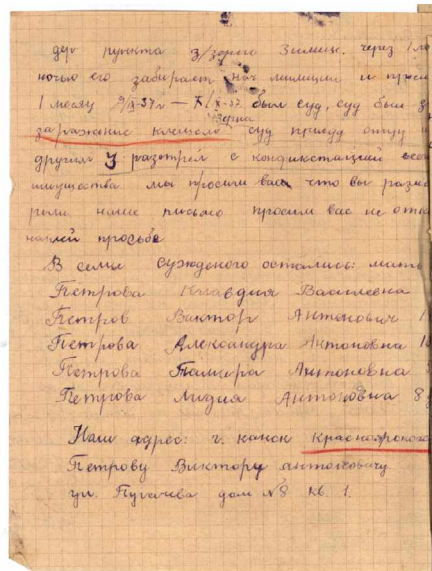 пункта з/зерно Зимиц. через 1
ночью его забирает нач милиции и
1 месяцу 9/X-37 г — 7/X-37 был суд, суд был
Зерни
заражение клещело суд приходу отцу и
другим 3 разтрел с конфикстацией
имущества мы просим вас что вы
наше письмо просим вас не
нашей просьбе
В семье сужденого остались: мать
Петрова Клавдия Василевна
Петров Виктор Антонович 1
Петрова Александра Антоновна 1
Петрова Тамара Антоновна
Петрова Лидия Антоновна 8
Наш адрес: г. канск
Петрову Виктору антоновичу
ул. Пугачева дом №8 кв. 1.